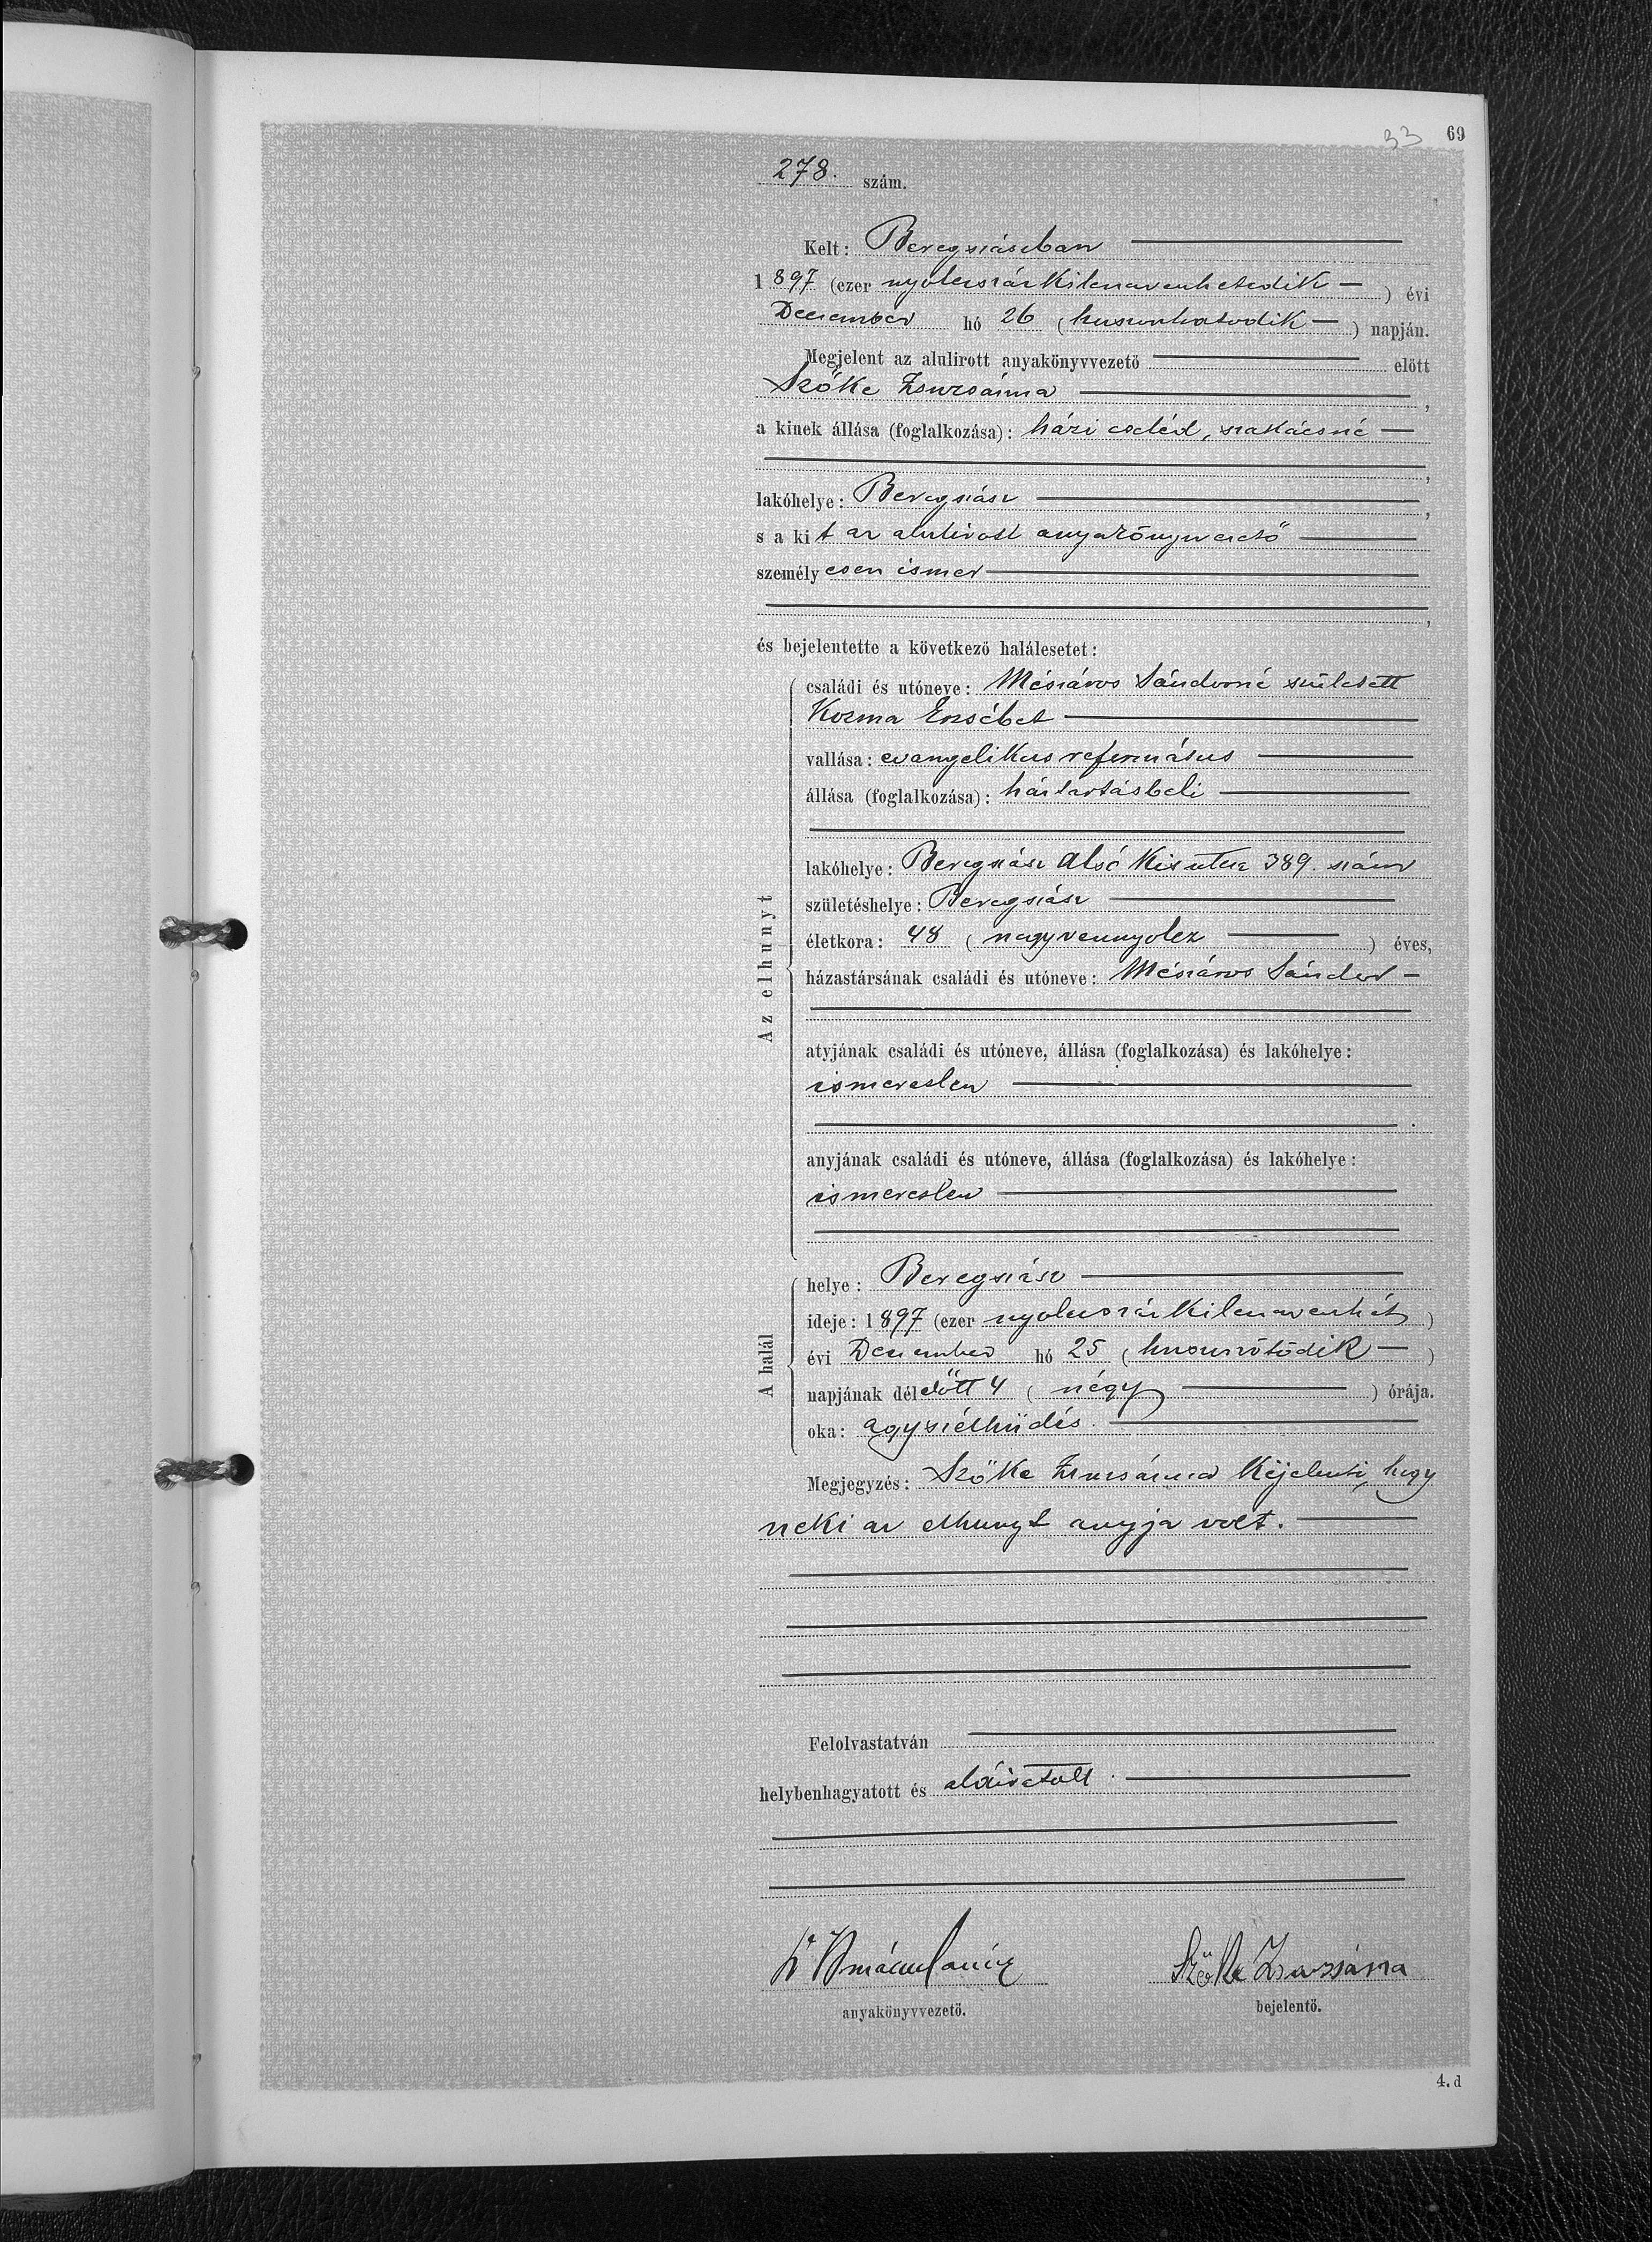 33 69
278. szám.
Kelt: Beregszászban
1897 (ezer nyolcszázkilencvenhetedik) évi
December hó 26 (huszonhatodik) napján.
Megjelent az alulirott anyakönyvvezető előtt
Szőke Zsuzsánna,
a kinek állása (foglalkozása): házi cseléd, szakácsné
,
lakóhelye: Beregszász,
s a kit az alulirott anyakönyvvezető
személyesen ismer
,
és bejelentette a következő halálesetet:
Az elhunyt
családi és utóneve: Mészáros Sándorné született
Kozma Erzsébet
vallása: evangelikus református
állása (foglalkozása): háztartásbeli
lakóhelye: Beregszász Alsó Kis utca 389. szám
születéshelye: Beregszász
életkora: 48 (negyvennyolcz) éves,
házastársának családi és utóneve: Mészáros Sándor
atyjának családi és utóneve, állása (foglalkozása) és lakóhelye:
ismeretlen
anyjának családi és utóneve, állása (foglalkozása) és lakóhelye:
ismeretlen
A halál
helye: Beregszász
ideje: 1897 (ezer nyolcszázkilencvenhét)
évi December hó 25 (huszonötödik)
napjának délelőtt 4 (négy) órája.
oka: agyszélhüdés.
Megjegyzés: Szőke Zsuzsánna kijelenti, hogy
neki az elhunyt anyja volt.
Felolvastatván
helybenhagyatott és aláiratott.
Szőke Zsuzsánna
anyakönyvvezető. bejelentő.
4. d